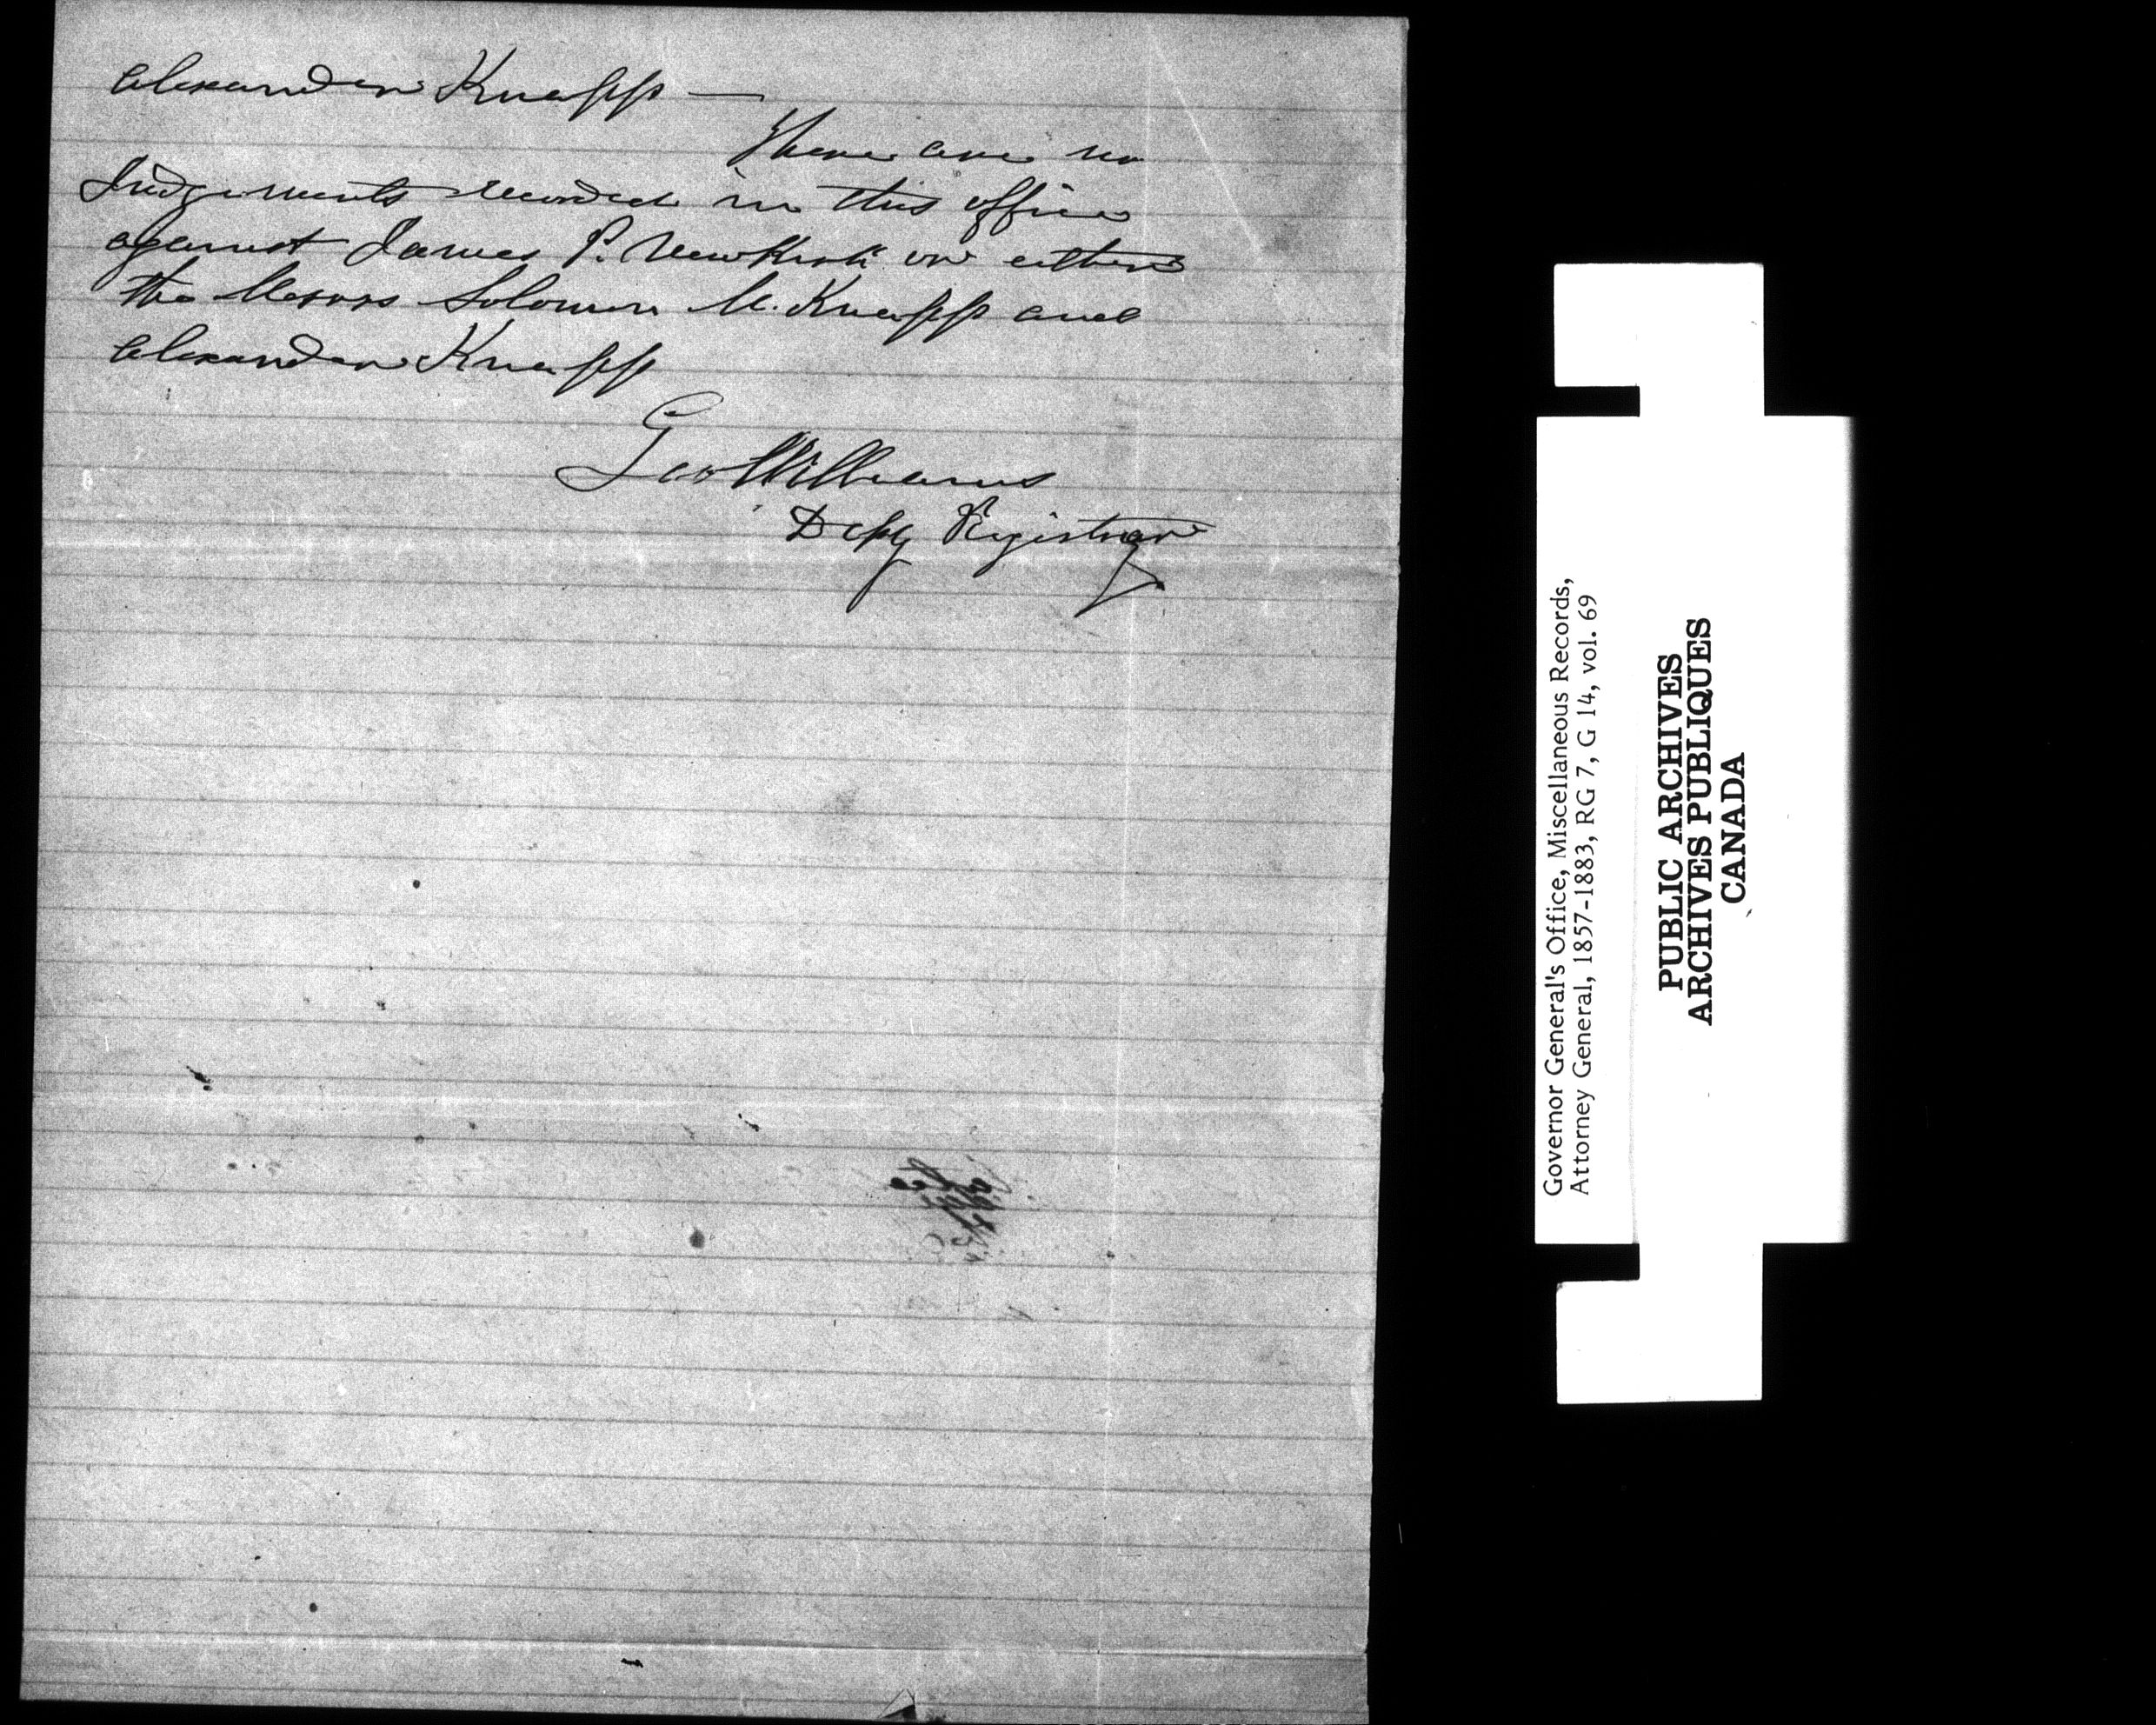 Alexander Knapp —
There are no
Judgements recorded in this office
against James P. Newkirk or either
the Messrs Solomon M. Knapp and
Alexander Knapp
Geo Williams
Depy Registrar
Governor General's Office, Miscellaneous Records,
Attorney General, 1857-1883, RG 7, G 14, vol. 69
PUBLIC ARCHIVES
ARCHIVES PUBLIQUES
CANADA